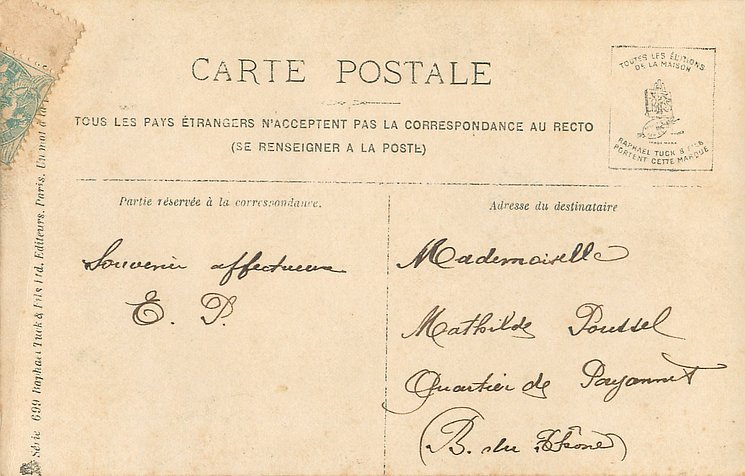 CARTE POSTALE
TOUS LES PAYS ÉTRANGERS N'ACCEPTENT PAS LA CORRESPONDANCE AU RECTO
(SE RENSEIGNER A LA POSTE)
TOUTES LES ÉDITIONS
DE LA MAISON
RAPHAEL TUCK & FILS
PORTENT CETTE MARQUE
Partie réservée à la correspondance.
Adresse du destinataire
Souvenir affectueux
E. P.
Mademoiselle
Mathilde Poussel
Quartier de Payannet
(B. du Rhône)
Série 699 Raphael Tuck & Fils Ltd. Editeurs. Paris.